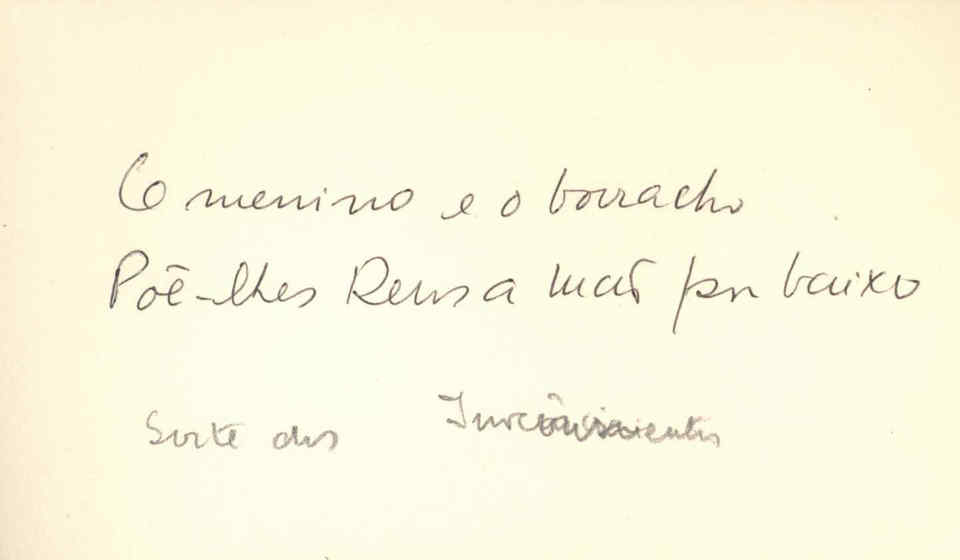 O menino e o borracho
Põe-lhes Deus a mão por baixo
Sorte dos